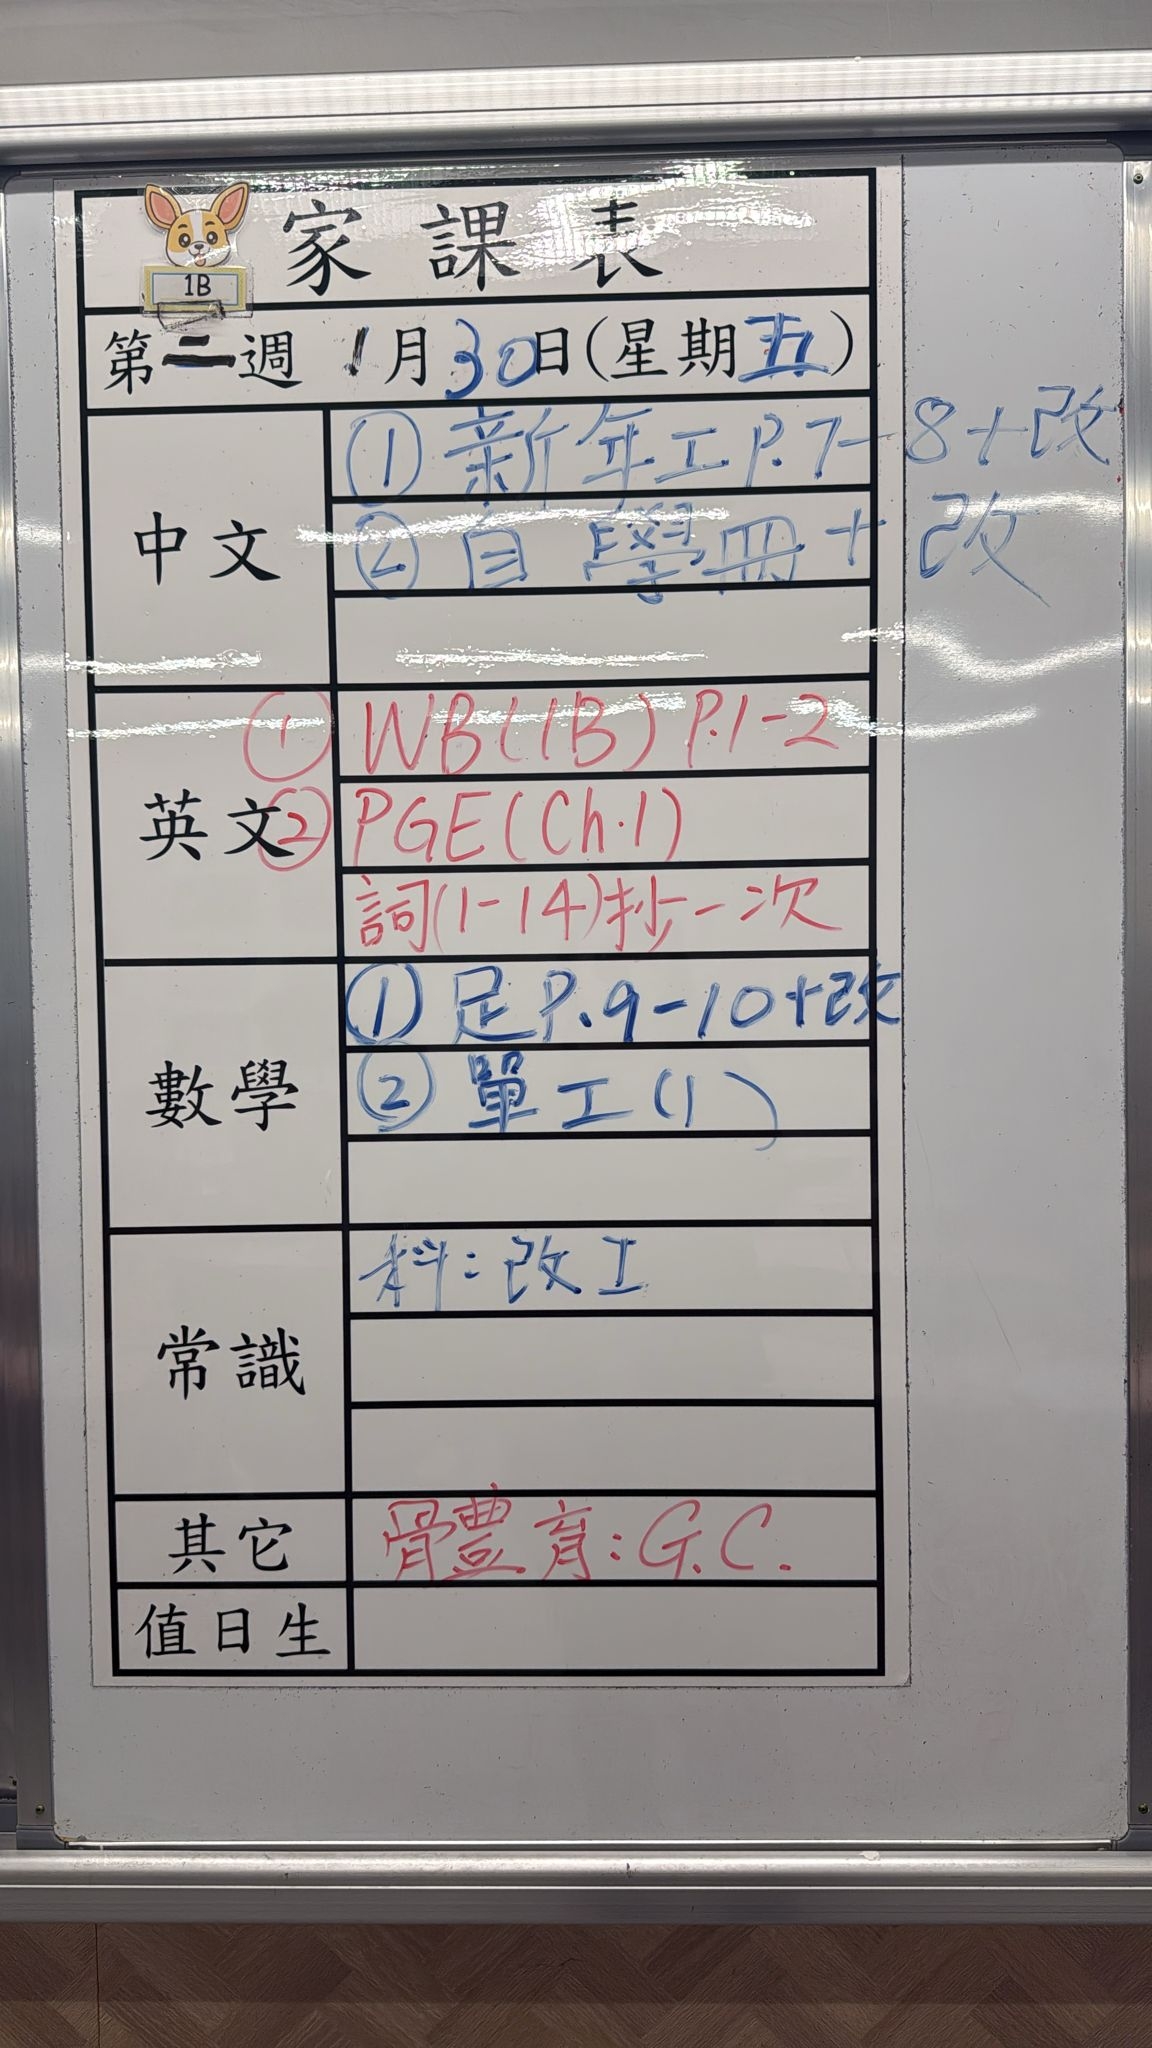 家課表
1B
第二週 1月30日(星期五)
中文
① 新年工P.7-8+改
② 自學冊+改
英文
① WB(1B) P.1-2
② PGE(Ch.1)
詞(1-14)抄一次
數學
① 足P.9-10+改
② 單工(1)
常識
科:改工
其它
體育:G.C.
值日生